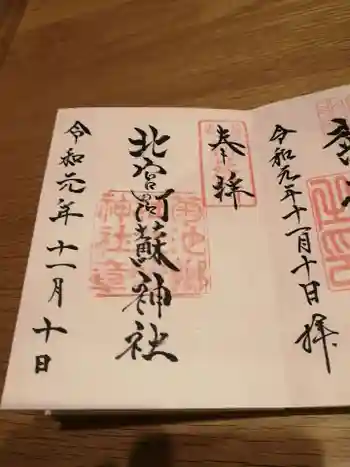 奉拝
北宮阿蘇神社
令和元年十一月十日
奉
令和元年十一月十日拝